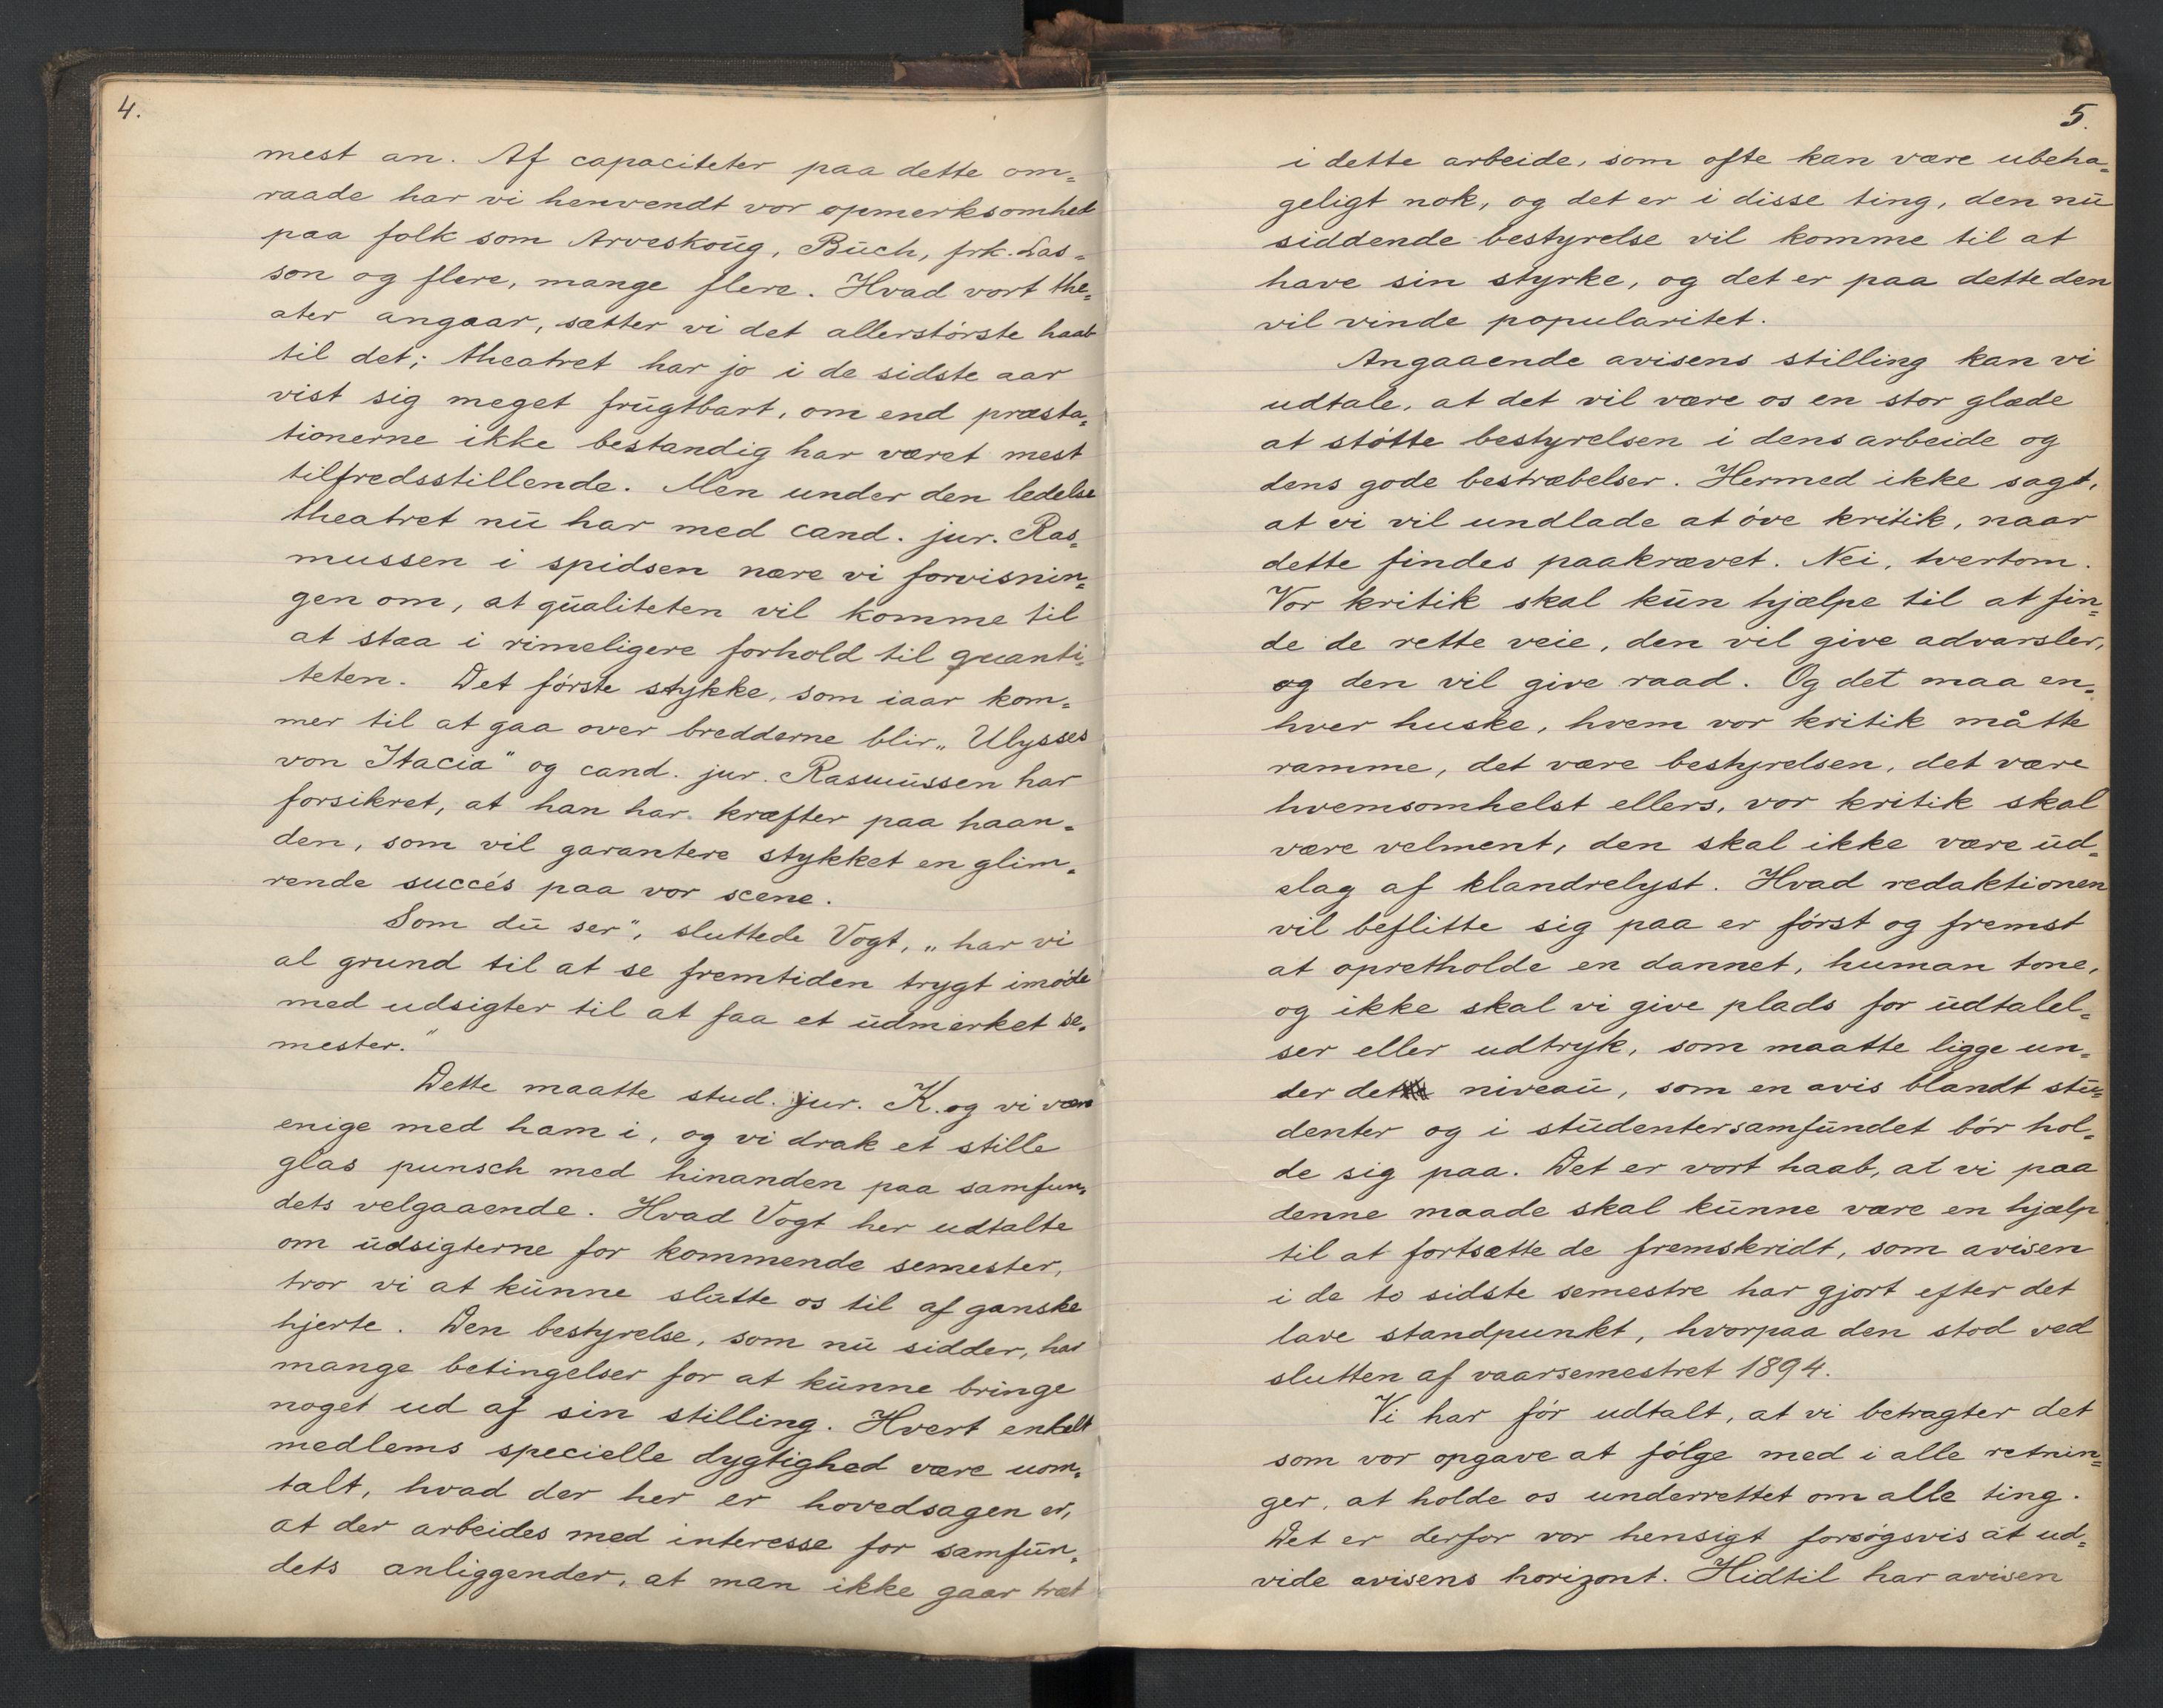 4.
mest an. Af capaciteter paa dette om=
raade har vi henvendt vor opmerksomhed
paa folk som Arveskoug, Buch, frk. Las=
son og flere, mange flere. Hvad vort the=
ater angaar, sætter vi det allerstörste haab
til det; theatret har jo i de sidste aar
vist sig meget frugtbart, om end præsta=
tionerne ikke bestandig har været mest
tilfredsstillende. Men under den ledelse
theatret nu har med cand. jur. Ras=
mussen i spidsen nære vi forvisnin=
gen om, at qualiteten vil komme til
at staa i rimeligere forhold til quanti=
teten. Det förste stykke, som iaar kom=
mer til at gaa over bredderne blir „Ulysses
von Itacia" og cand. jur. Rasmussen har
forsikret, at han har kræfter paa haan=
den, som vil garantere stykket en glim=
rende succés paa vor scene.
Som du ser", sluttede Vogt, „har vi
al grund til at se fremtiden trygt imöde
med udsigter til at faa et udmerket se=
mester."
Dette maatte stud. jur. K. og vi være
enige med ham i, og vi drak et stille
glas punsch med hinanden paa samfun=
dets velgaaende. Hvad Vogt her udtalte
om udsigterne for kommende semester,
tror vi at kunne slutte os til af ganske
hjerte. Den bestyrelse, som nu sidder, har
mange betingelser for at kunne bringe
noget ud af sin stilling. Hvert enkelt
medlems specielle dygtighed være uom=
talt, hvad der her er hovedsagen er,
at der arbeides med interesse for samfun=
dets anliggender, at man ikke gaar træt
5.
i dette arbeide, som ofte kan være ubeha=
geligt nok, og det er i disse ting, den nu
siddende bestyrelse vil komme til at
have sin styrke, og det er paa dette den
vil vinde popularitet.
Angaaende avisens stilling kan vi
udtale, at det vil være os en stor glæde
at stötte bestyrelsen i dens arbeide og
dens gode bestræbelser. Hermed ikke sagt,
at vi vil undlade at öve kritik, naar
dette findes paakrævet. Nei, tvertom.
Vor kritik skal kun hjælpe til at fin=
de de rette veie, den vil give advarsler,
og den vil give raad. Og det maa en=
hver huske, hvem vor kritik måtte
ramme, det være bestyrelsen, det være
hvemsomhelst ellers, vor kritik skal
være velment, den skal ikke være ud=
slag af klandrelyst. Hvad redaktionen
vil beflitte sig paa er först og fremst
at opretholde en dannet, human tone,
og ikke skal vi give plads for udtalel=
ser eller udtryk, som maatte ligge un=
der det niveau, som en avis blandt stu=
denter og i studentersamfundet bör hol=
de sig paa. Det er vort haab, at vi paa
denne maade skal kunne være en hjælp
til at fortsætte de fremskridt, som avisen
i de to sidste semestre har gjort efter det
lave standpunkt, hvorpaa den stod ved
slutten af vaarsemestret 1894.
Vi har för udtalt, at vi betragter det
som vor opgave at fölge med i alle retnin=
ger, at holde os underrettet om alle ting.
Det er derfor vor hensigt forsøgsvis at ud=
vide avisens horizont. Hidtil har avisen